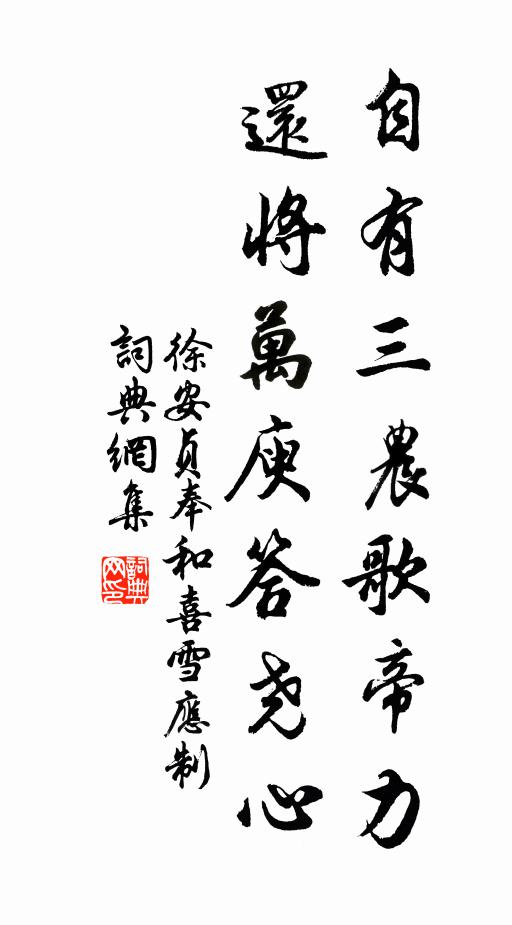 自有三農歌帝力
還將萬庾答尧心
徐安貞奉和喜雪應制
詞典網集
詞典网印